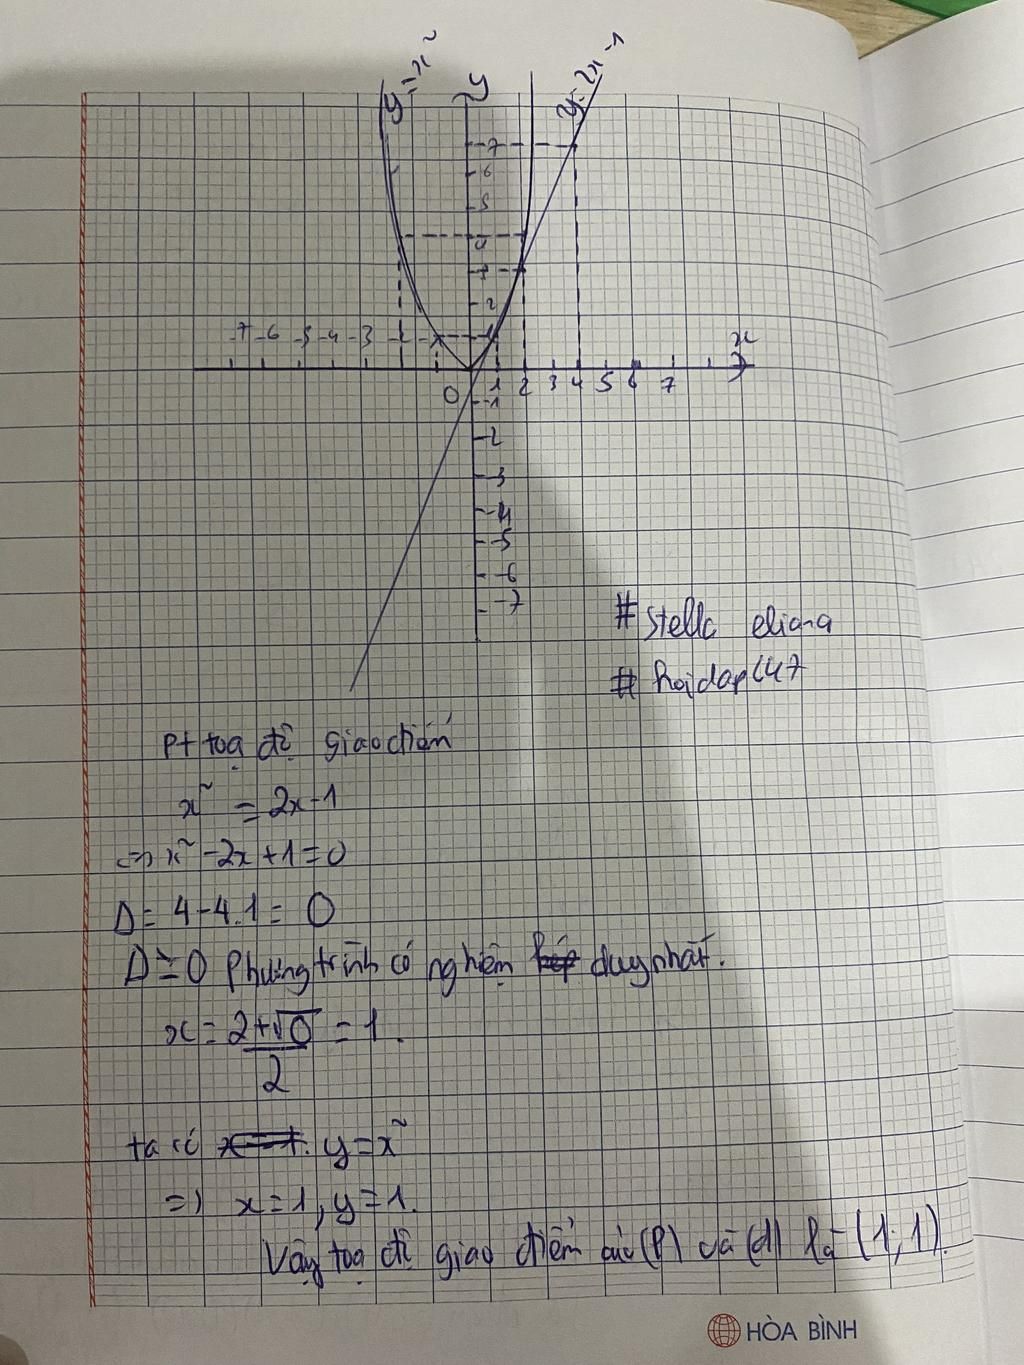 y=x²
y
y=2x-1
7
6
5
4
3
2
1
-7 -6 -5 -4 -3 -2 -1
x
0 1 2 3 4 5 6 7
-1
-2
-3
-4
-5
-6
-7
# stella eliana
# hoidap247
Pt toạ độ giao điểm
x² = 2x-1
<=> x² -2x+1=0
Δ= 4-4.1= 0
Δ=0 Phương trình có nghiệm kép duy nhất.
x = (2+√0)/2 = 1.
ta có x=1. y=x²
=> x=1, y=1.
Vậy toạ độ giao điểm của (P) và (d) là (1;1).
HÒA BÌNH